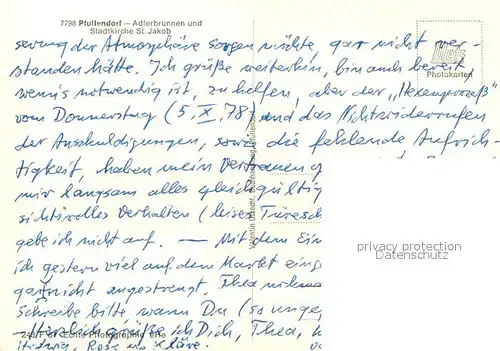 7798 Pfullendorf — Adlerbrunnen und
Stadtkirche St. Jakob
serung der Atmosphäre sorgen möchte, gar nicht ver-
standen hätte. Ich grüße weiterhin, bin auch bereit,
wenn's notwendig ist, zu helfen, aber der „Hexenprozeß"
vom Donnerstag (5.X.78) und das Nichtwiderrufen
der Anschuldigungen, sowie die fehlende Aufrich-
tigkeit, haben mein Vertrauen
mir langsam alles gleichgültig
sichtsvolles Verhalten (leises Türesch
gebe ich nicht auf. — Mit dem Ein
ich gestern viel auf dem Markt
gar nicht angestrengt. Thea
Schreibe bitte, wann Du (so unge
Herzlich grüße ich Dich, Thea,
Hedwig, Rosa und Kläre.
Photokarten
privacy protection
Datenschutz